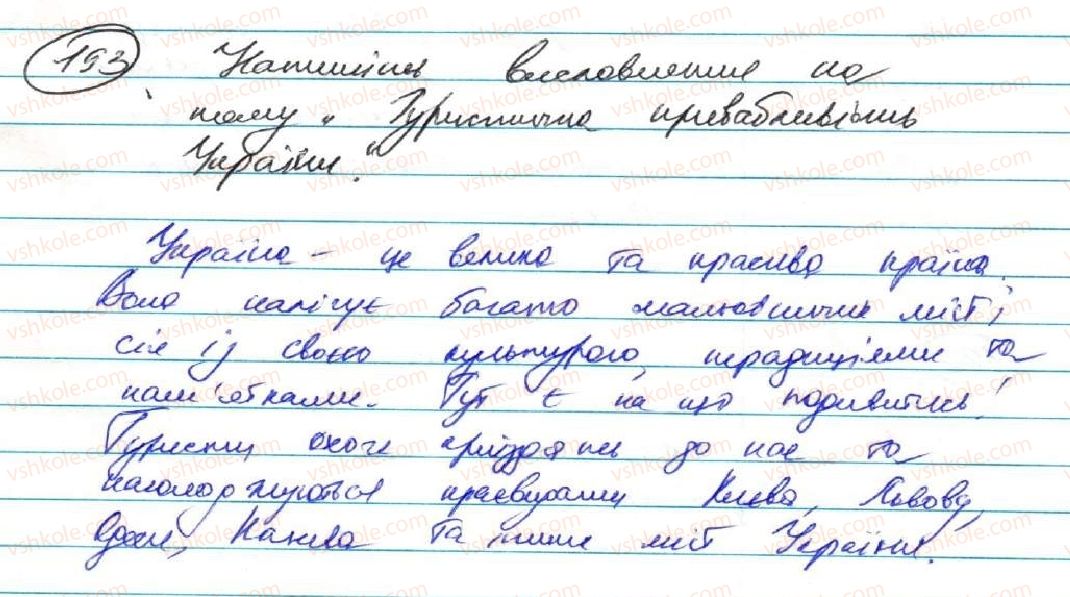 193 Напишіть висловлення на
тему „Туристична привабливість
України."
Україна – це велика та красива країна.
Вона налічує багато мальовничих міст і
сіл із своєю культурою, традиціями та
пам'ятками. Тут є на що подивитись!
Туристи охоче приїздять до нас та
насолоджуються краєвидами Києва, Львову,
Одеси, Канева та інших міст України.